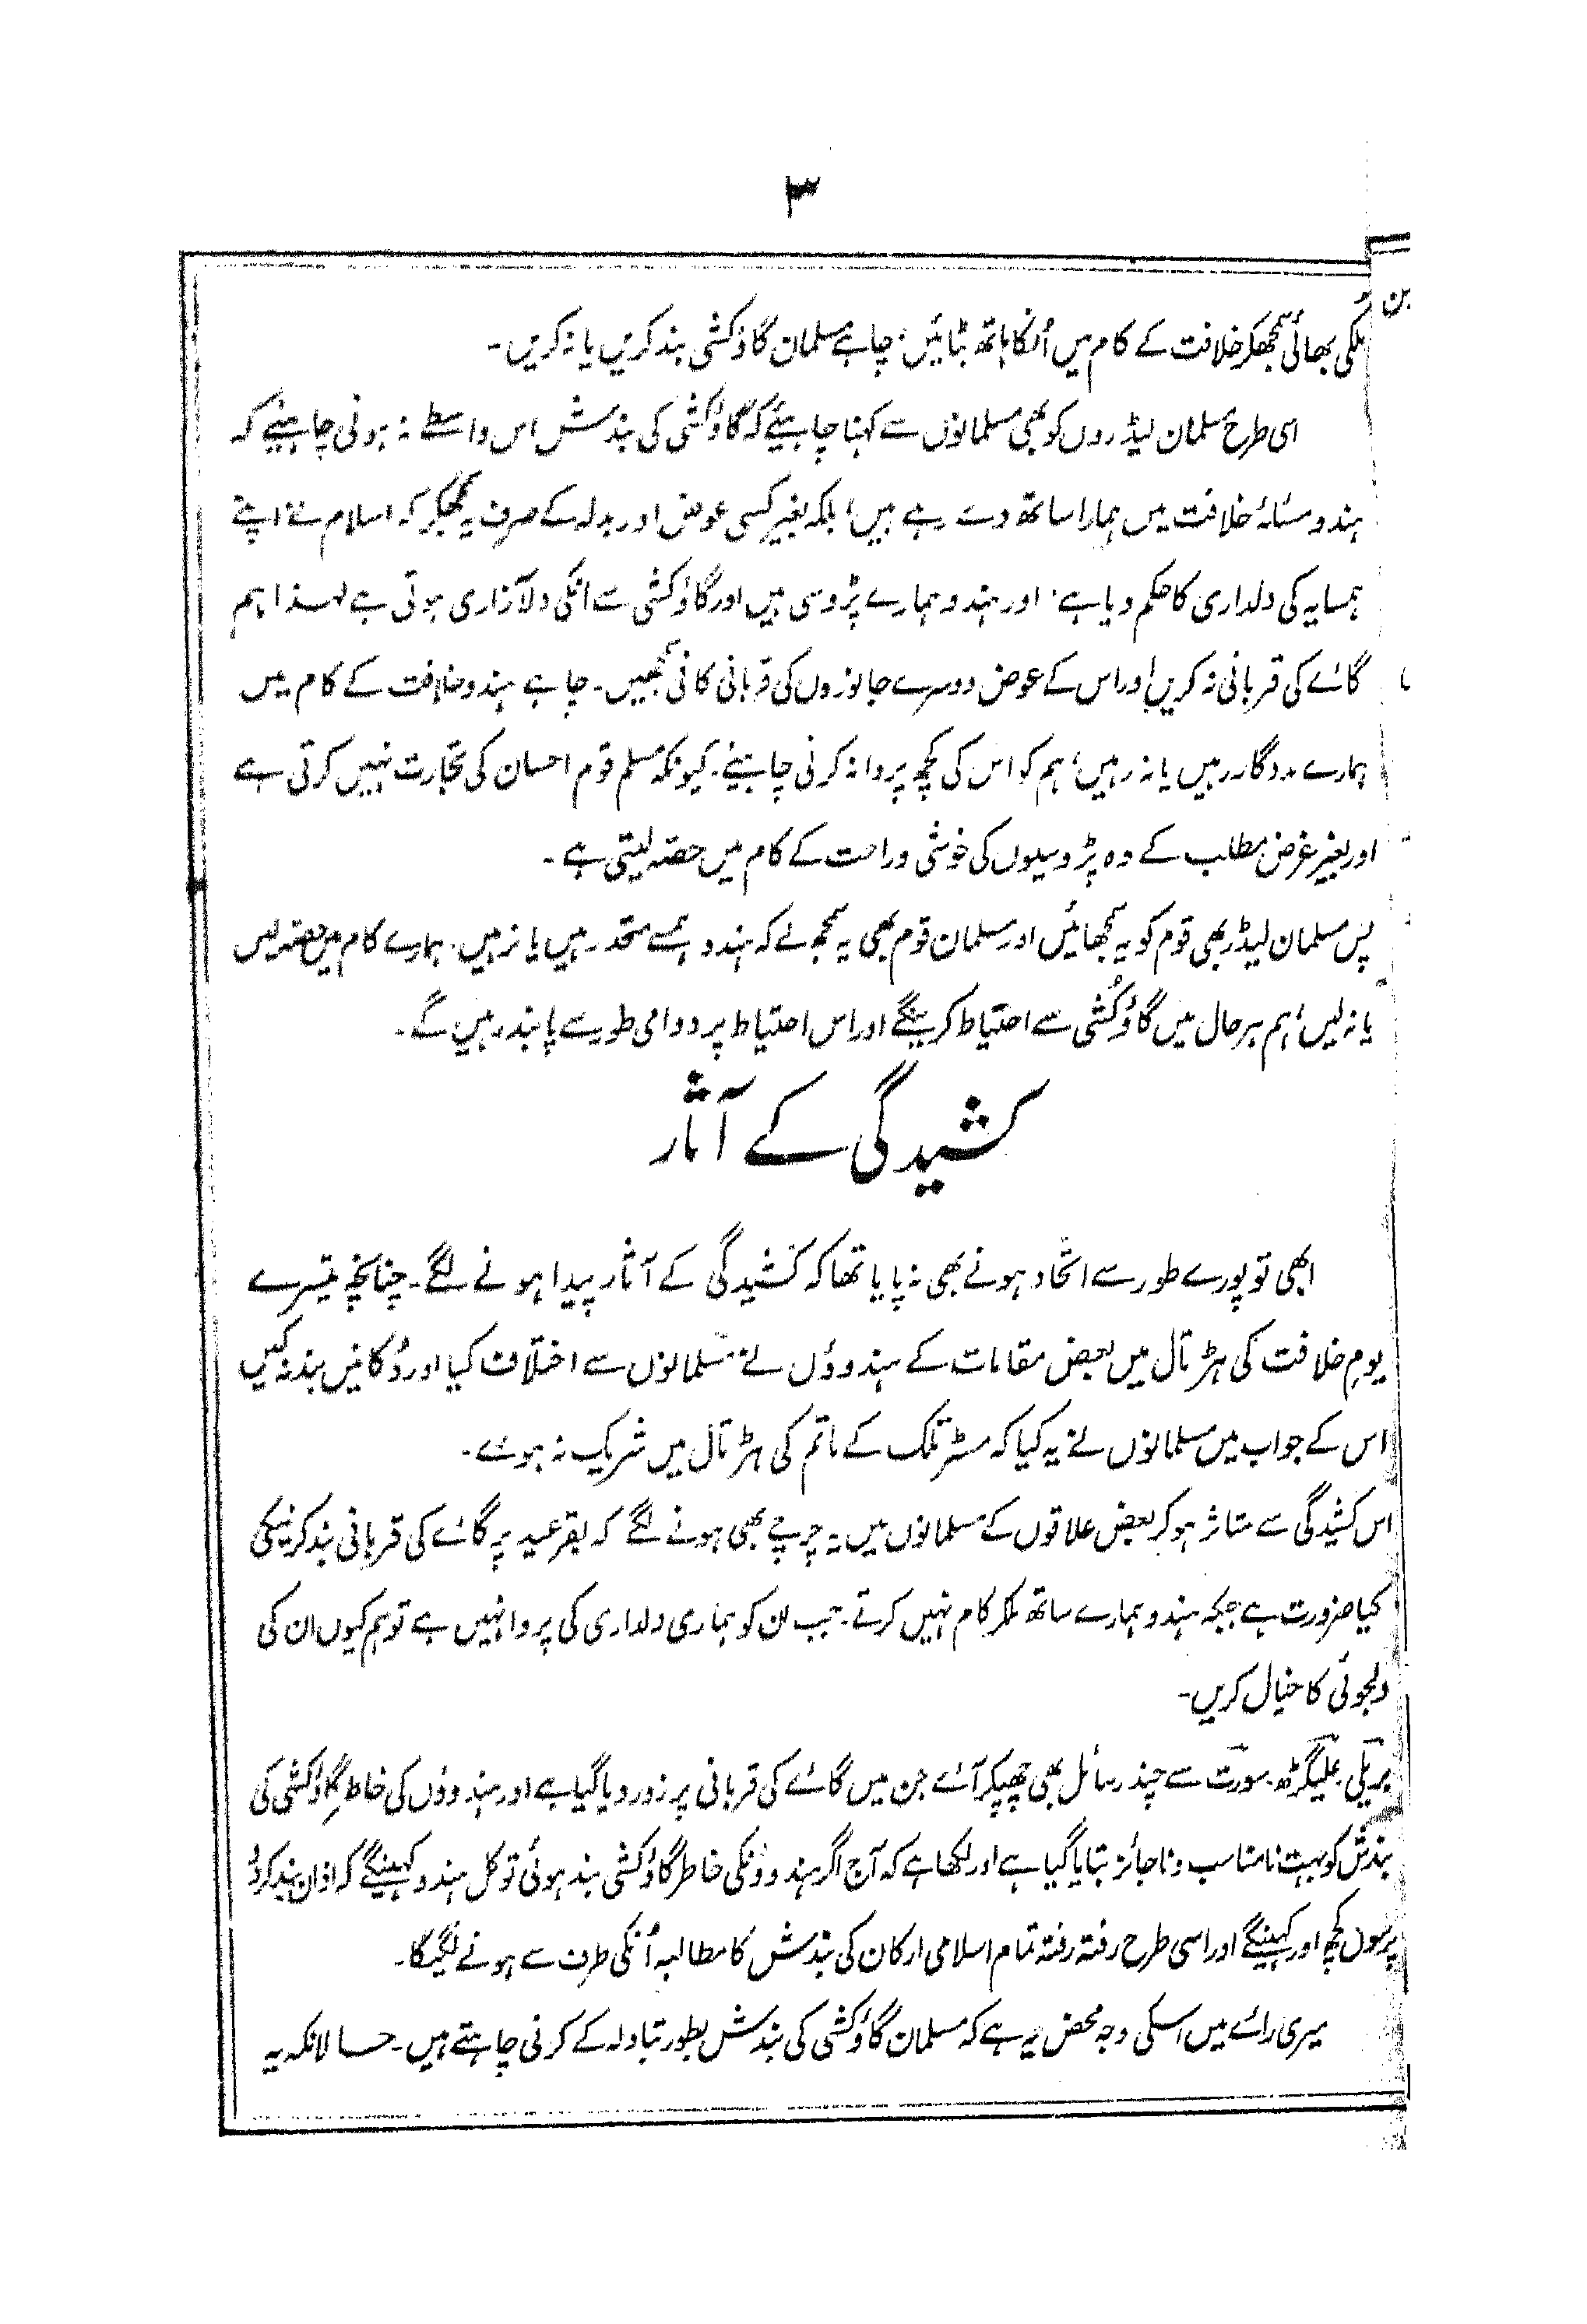 ۳
ملکی بھائی سمجھکر خلافت کے کام میں اُنکا ہاتھ بٹائیں، چاہے مسلمان گاؤکشی بند کریں یا نہ کریں۔
اسی طرح مسلمان لیڈروں کو بھی مسلمانوں سے کہنا چاہیئے کہ گاؤکشی کی بندش اس واسطے نہ ہونی چاہیئے کہ
ہندو مسئلۂ خلافت میں ہمارا ساتھ دے رہے ہیں، بلکہ بغیر کسی عوض اور بدلہ کے صرف یہ سمجھکر کہ اسلام نے اپنے
ہمسایہ کی دلداری کا حکم دیا ہے، اور ہندو ہمارے پڑوسی ہیں اور گاؤکشی سے انکی دلآزاری ہوتی ہے لہذا ہم
گائے کی قربانی نہ کریں اور اس کے عوض دوسرے جانوروں کی قربانی کافی سمجھیں۔ چاہے ہندو خلافت کے کام میں
ہمارے مددگار رہیں یا نہ رہیں، ہم کو اس کی کچھ پروا نہ کرنی چاہیئے۔ کیونکہ مسلم قوم احسان کی تجارت نہیں کرتی ہے
اور بغیر غرض مطلب کے وہ پڑوسیوں کی خوشی و راحت کے کام میں حصہ لیتی ہے۔
پس مسلمان لیڈر بھی قوم کو یہ سمجھائیں اور مسلمان قوم بھی یہ سمجھ لے کہ ہندو ہمسے متحد رہیں یا نرہیں۔ ہمارے کام میں حصہ لیں
یا نہ لیں، ہم ہر حال میں گاؤکُشی سے احتیاط کرینگے اور اس احتیاط پر دوامی طور سے پابند رہیں گے۔
کشیدگی کے آثار
ابھی تو پورے طور سے اتحاد ہونے بھی نہ پایا تھا کہ کشیدگی کے آثار پیدا ہونے لگے۔ چنانچہ تیسرے
یومِ خلافت کی ہڑتال میں بعض مقامات کے ہندوؤں نے مسلمانوں سے اختلاف کیا اور دُکانیں بند نہ کیں
اس کے جواب میں مسلمانوں نے یہ کیا کہ مسٹر تلک کے ماتم کی ہڑتال میں شریک نہ ہوئے۔
اس کشیدگی سے متاثر ہو کر بعض علاقوں کے مسلمانوں میں یہ چرچے بھی ہونے لگے کہ بقرعید پر گائے کی قربانی بند کرنیکی
کیا ضرورت ہے جبکہ ہندو ہمارے ساتھ ملکر کام نہیں کرتے۔ جب ان کو ہماری دلداری کی پروا نہیں ہے تو ہم کیوں ان کی
دلجوئی کا خیال کریں۔
بریلی۔ علیگڑھ۔ سورت سے چند رسائل بھی چھپکر آئے جن میں گائے کی قربانی پر زور دیا گیا ہے اور ہندوؤں کی خاطر گاؤکشی کی
بندش کو بہت نامناسب و ناجائز بتایا گیا ہے اور لکھا ہے کہ آج اگر ہندوؤنکی خاطر گاؤکشی بند ہوئی تو کل ہندو کہینگے کہ اذان بند کردُ
پرسوں کچھ اور کہینگے اور اسی طرح رفتہ رفتہ تمام اسلامی ارکان کی بندش کا مطالبہ اُنکی طرف سے ہونے لگیگا۔
میری رائے میں اسکی وجہ محض یہ ہے کہ مسلمان گاؤکشی کی بندش بطور تبادلہ کے کرنی چاہتے ہیں۔ حالانکہ یہ